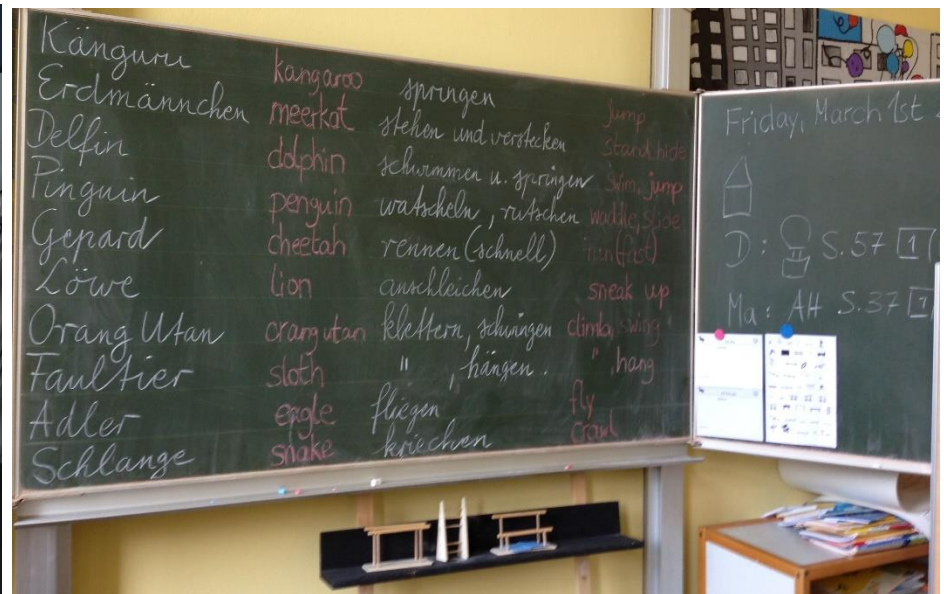 Känguru kangaroo springen jump
Erdmännchen meerkat stehen und verstecken stand, hide
Delfin dolphin schwimmen u. springen swim, jump
Pinguin penguin watscheln, rutschen waddle, slide
Gepard cheetah rennen (schnell) run (fast)
Löwe lion anschleichen sneak up
Orang Utan orang utan klettern, schwingen climb, swing
Faultier sloth " , hängen. " , hang
Adler eagle fliegen fly
Schlange snake kriechen crawl
Friday, March 1st
D: S. 57 1
Ma: AH S. 37